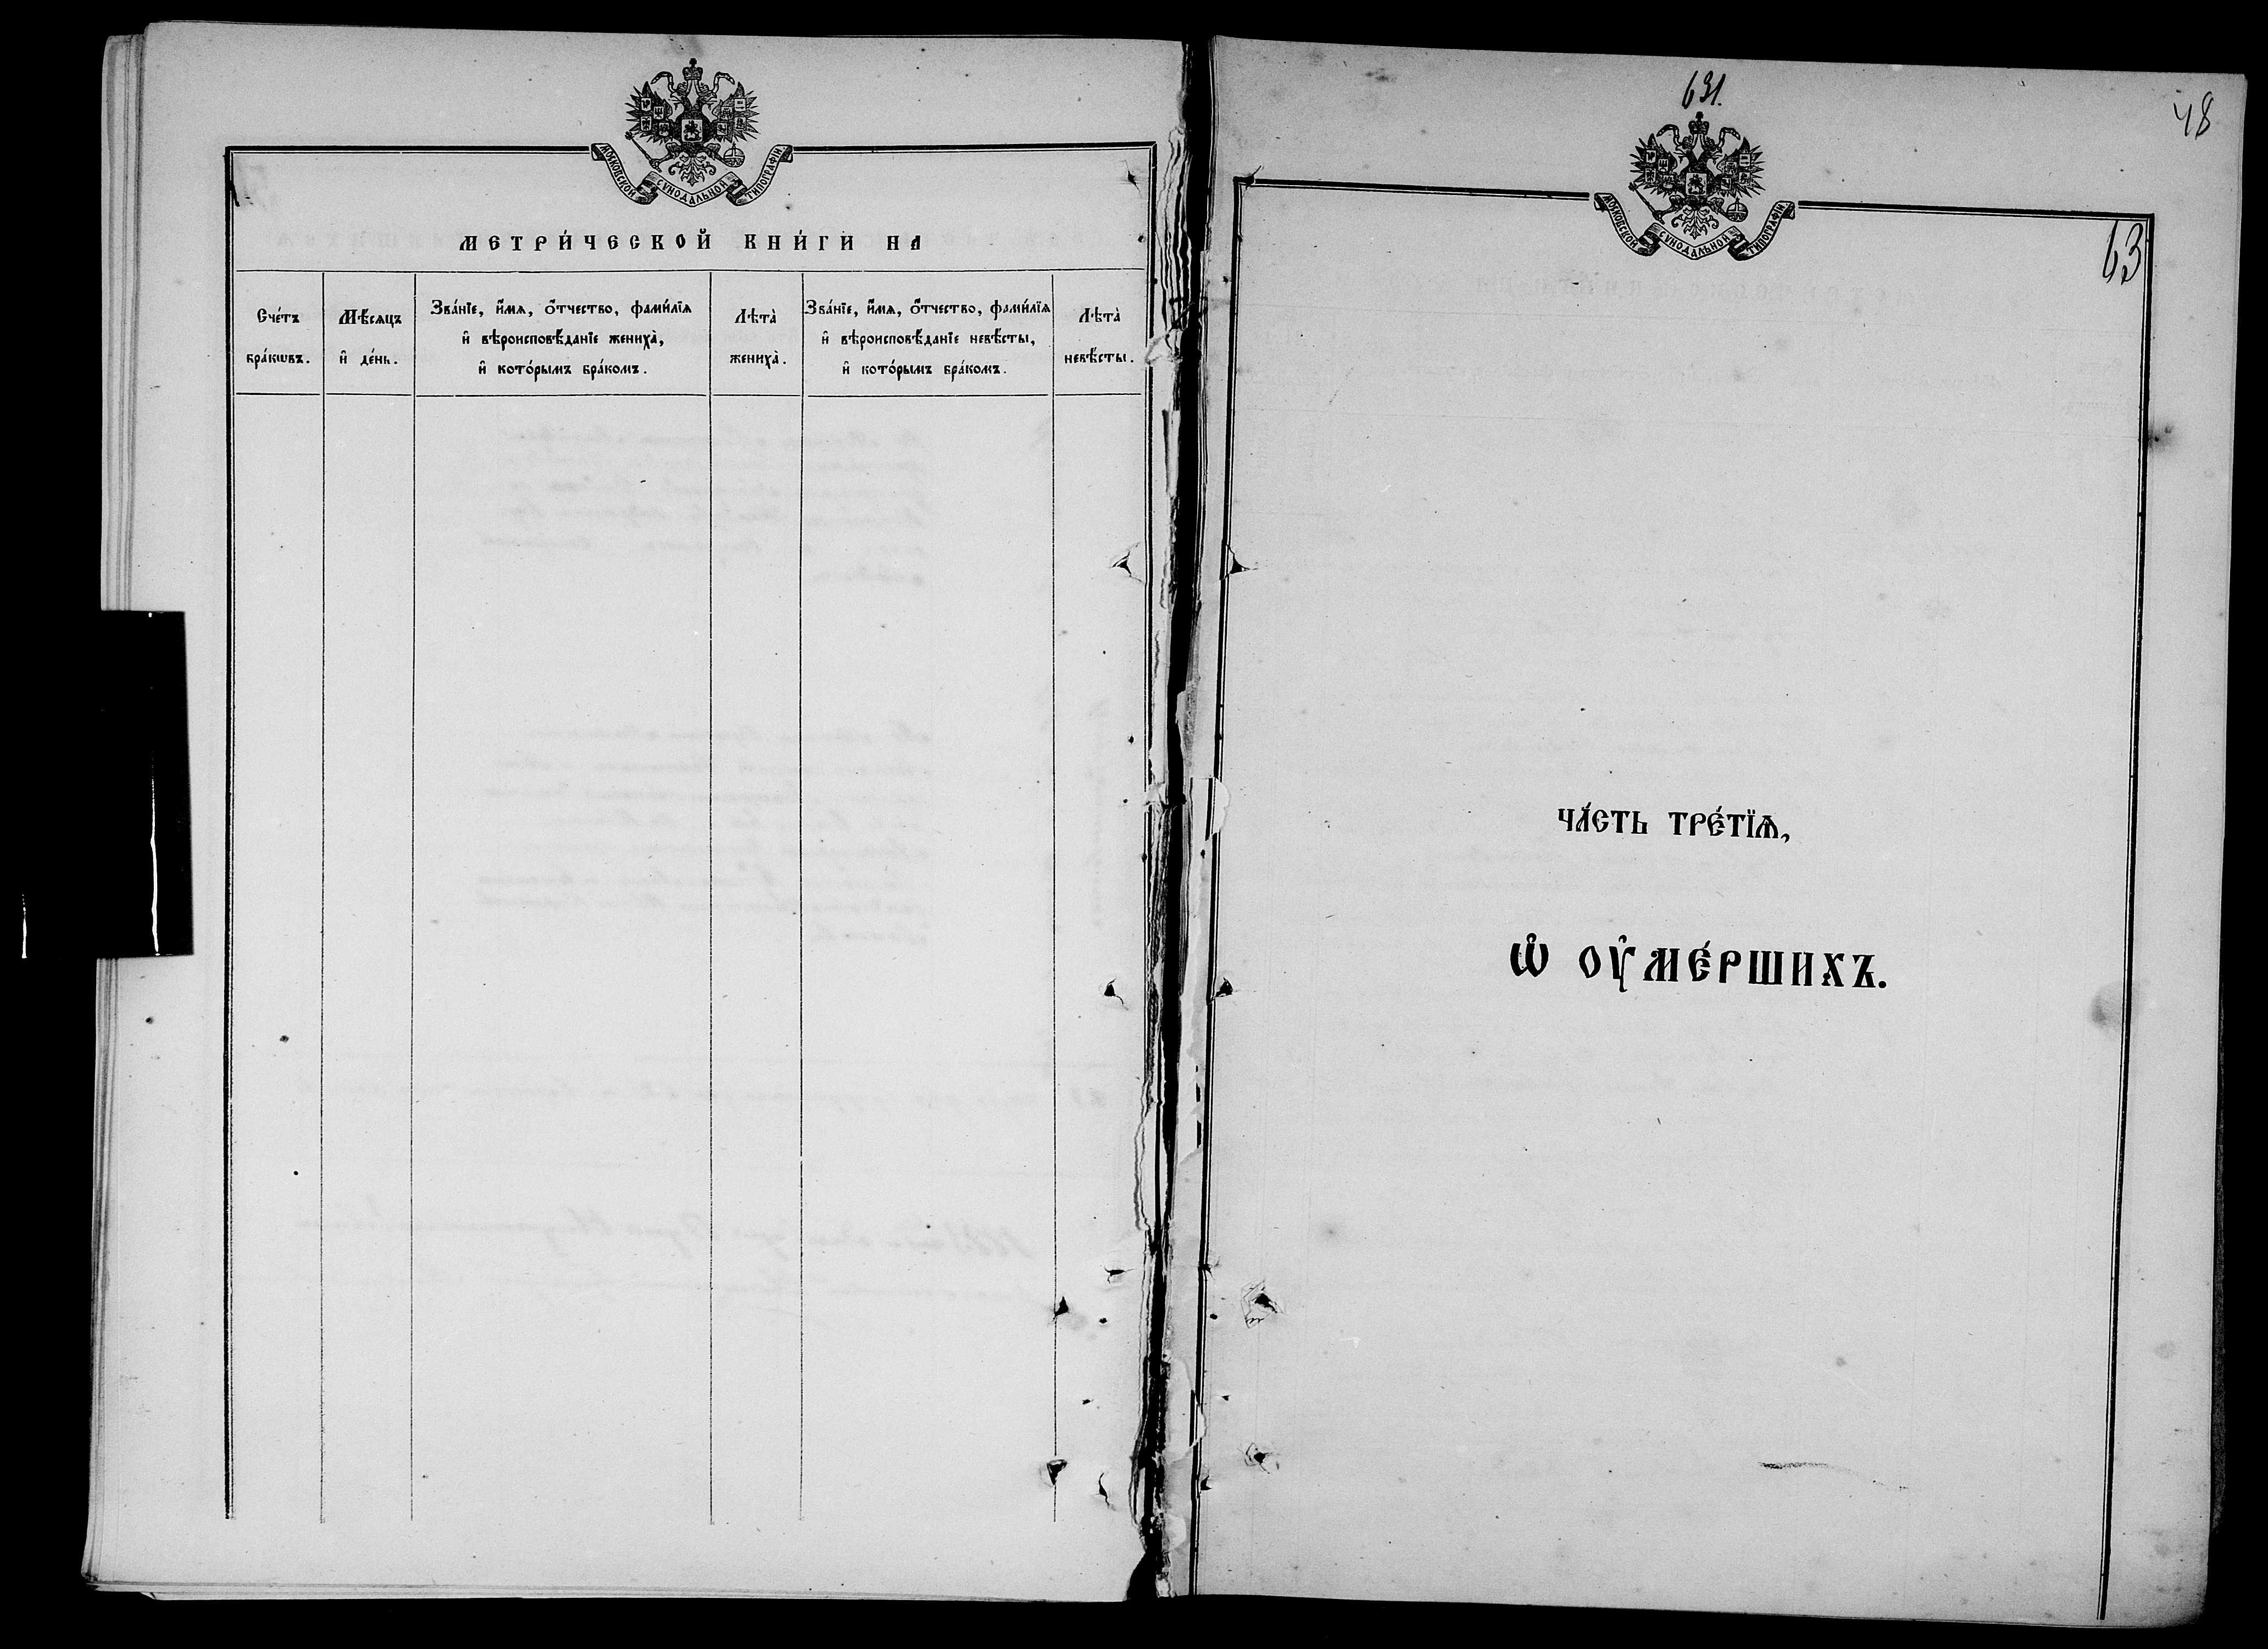 МОСКОВСКОЙ СѴНОДАЛЬНОЙ ТИПОГРАФІИ
МЕТРИ́ЧЕСКОЙ КНИ́ГИ НА
Сче́тъ
бра́кѡвъ.
Мѣ́сяцъ
и҆ де́нь.
Зва́нїе, и҆́мѧ, ѻ҆́тчество, фами́лїѧ
и҆ вѣроисповѣ́данїе жениха̀,
и҆ кото́рымъ бра́комъ.
Лѣта̀
жениха̀.
Зва́нїе, и҆́мѧ, ѻ҆́тчество, фами́лїѧ
и҆ вѣроисповѣ́данїе невѣ́сты,
и҆ кото́рымъ бра́комъ.
Лѣта̀
невѣ́сты.
631.
48
МОСКОВСКОЙ СѴНОДАЛЬНОЙ ТИПОГРАФІИ
63
ЧА́СТЬ ТРЕ́ТЇѦ,
Ѡ҆ ОУ҆МЕ́РШИХЪ.